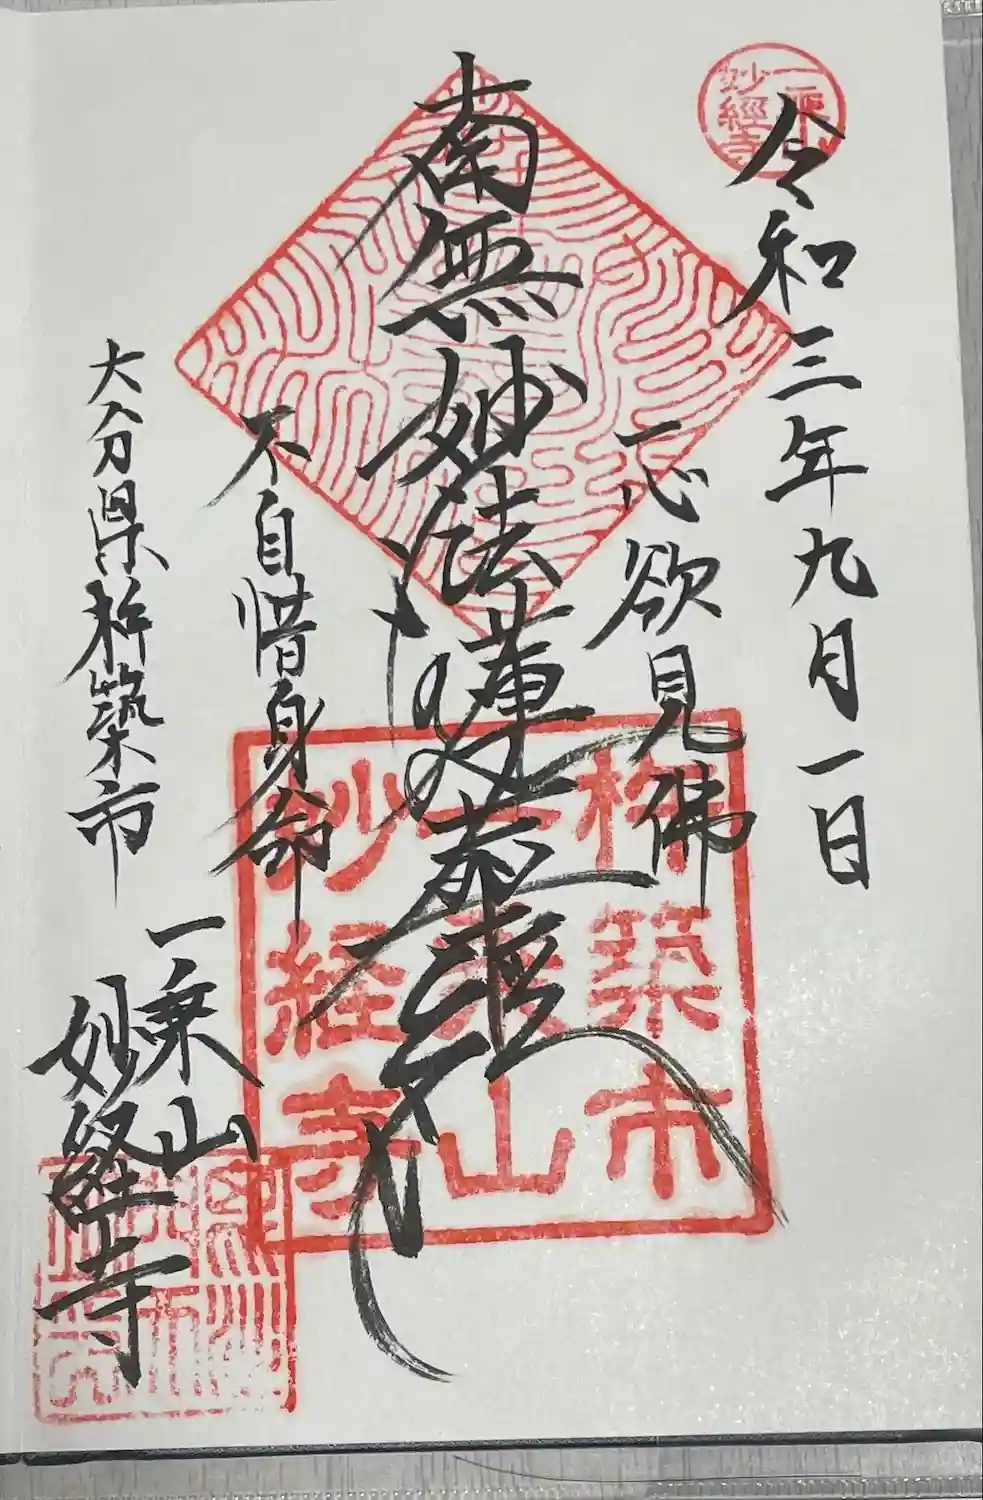 令和三年九月一日
一心欲見佛
南無妙法蓮華経
不自惜身命
大分県杵築市
一乗山
妙経寺
一乗山
妙經寺
杵築市
一乗山
妙経寺